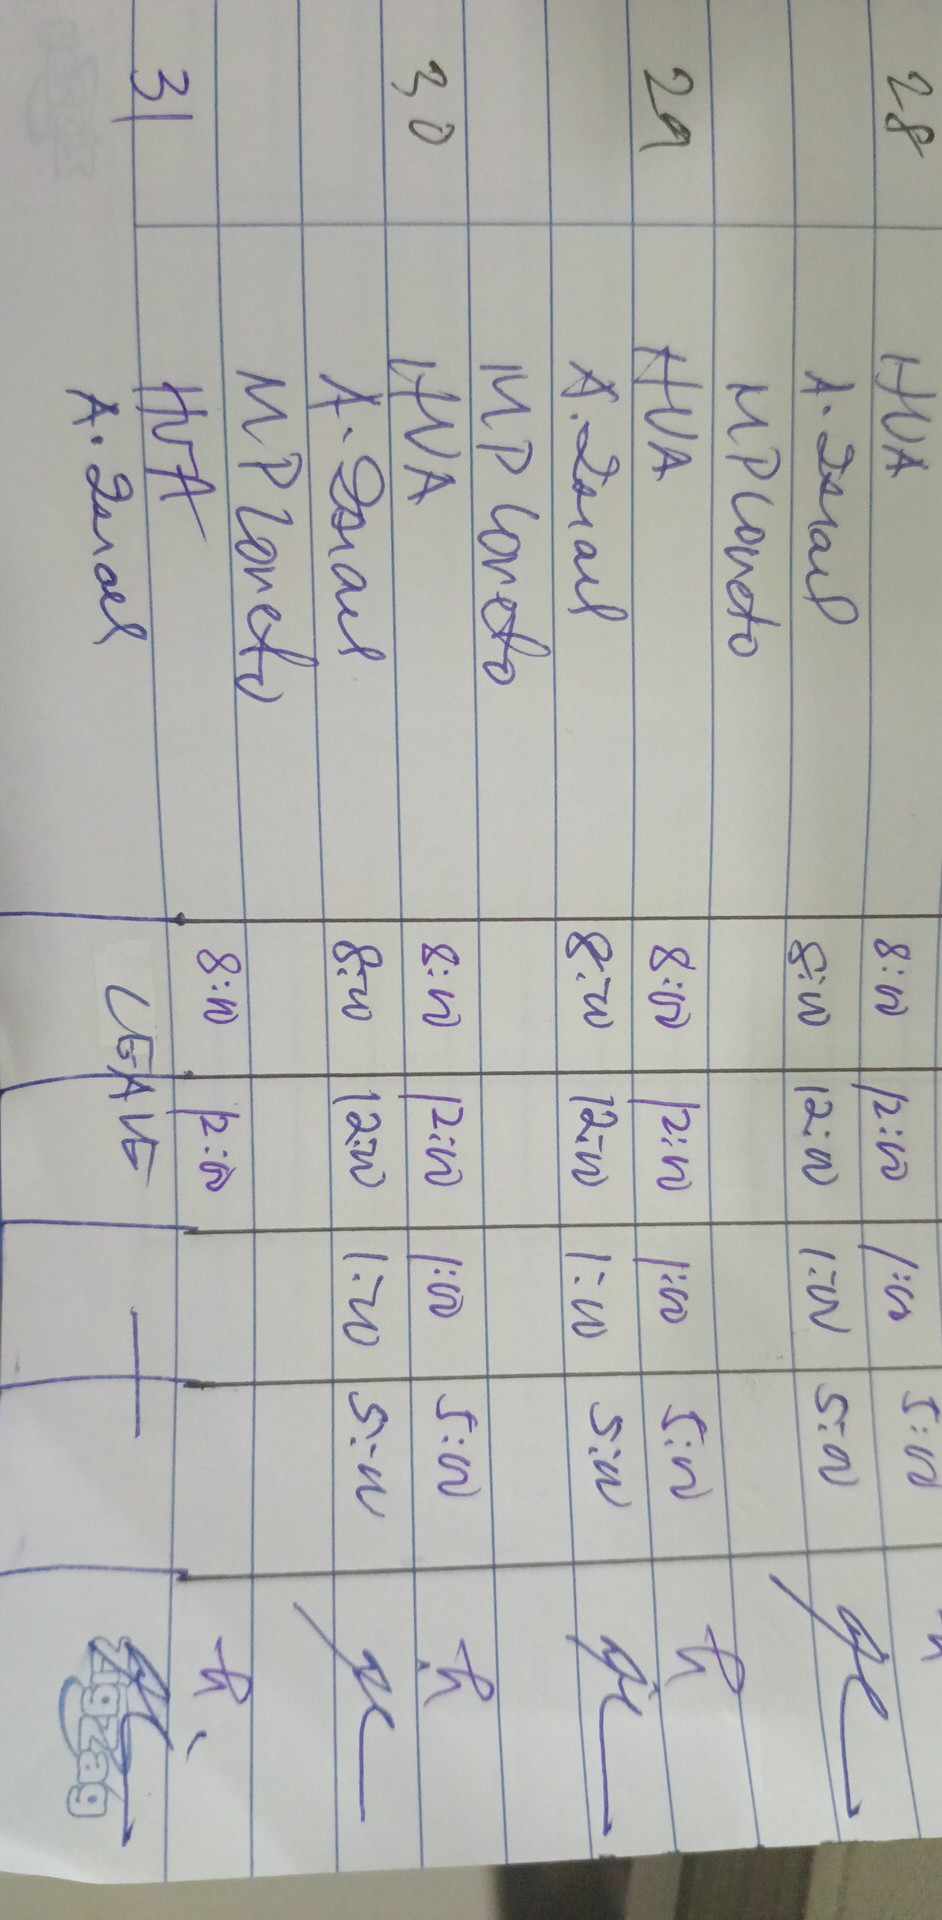 28 HVA 8:00 12:00 1:00 5:00
A. Israel 8:00 12:00 1:00 5:00
MP Loreto
29 HVA 8:00 12:00 1:00 5:00
A. Israel 8:00 12:00 1:00 5:00
MP Loreto
30 HVA 8:00 12:00 1:00 5:00
A. Israel 8:00 12:00 1:00 5:00
MP Loreto
31 HVA 8:00 12:00
A. Israel LEAVE —
ZigZag